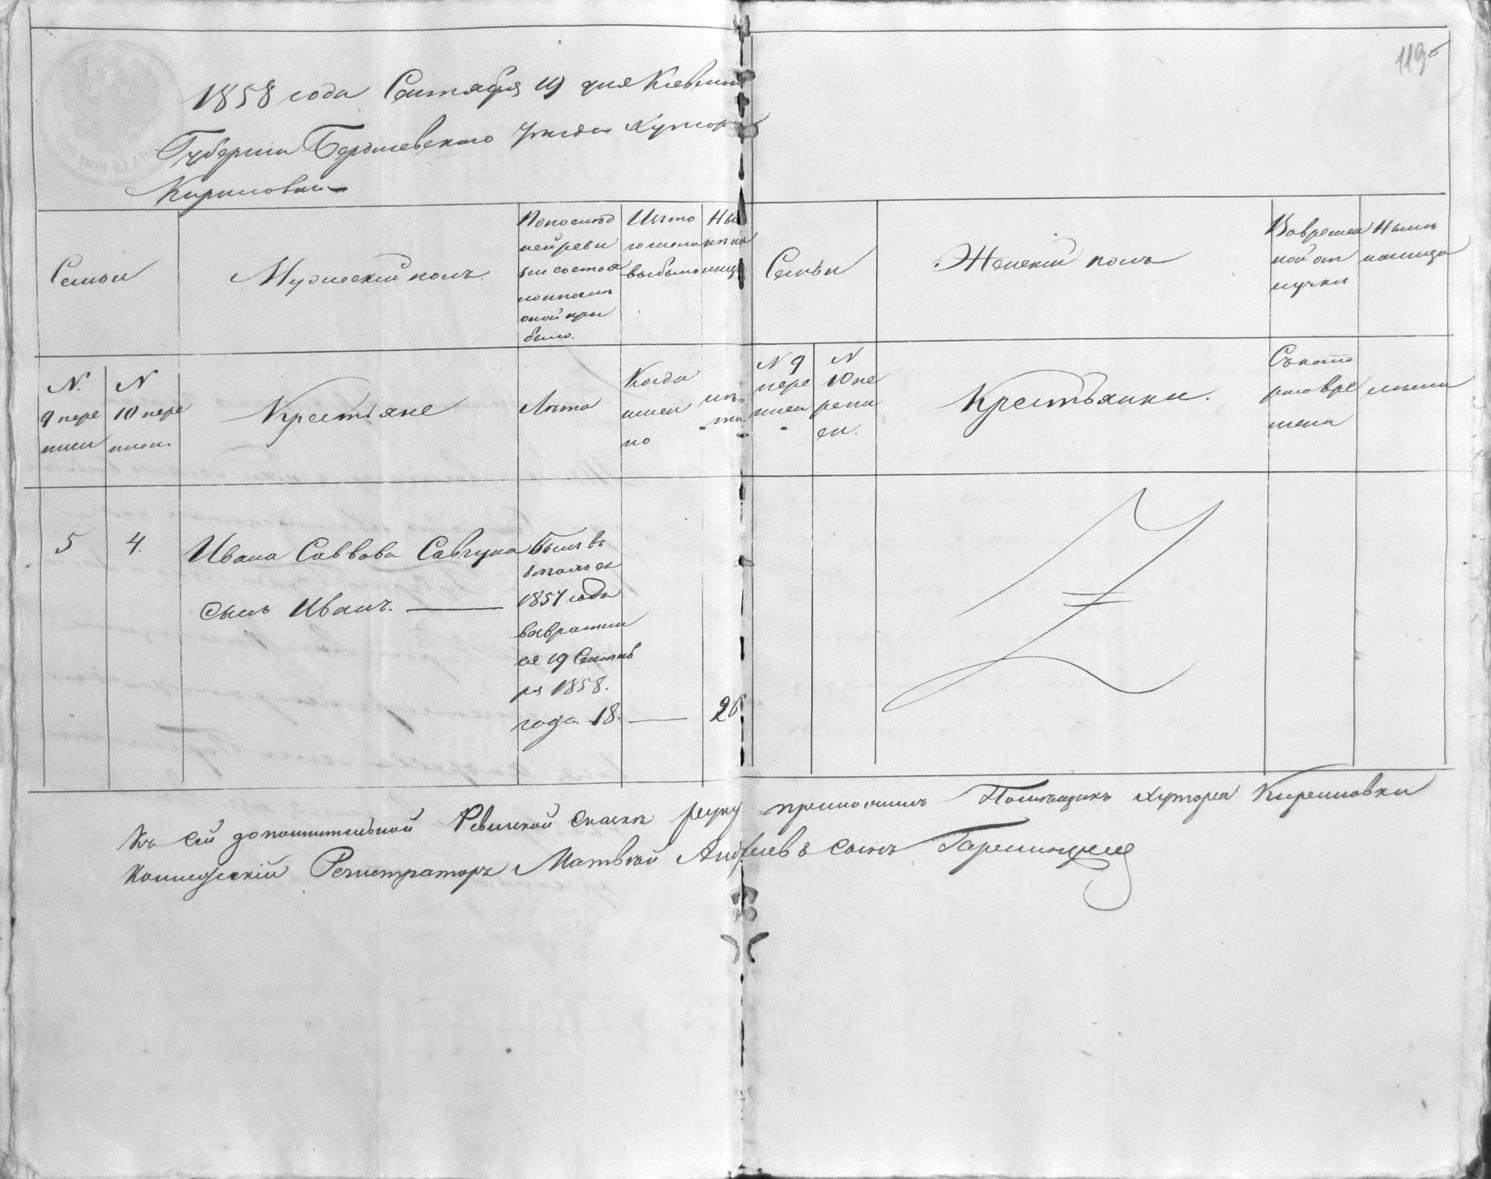 119
1858 года Сентября 19 дня Киевской
Губернии Бердичевского уезда Хутора
Кириловки
Семьи
Мужеский полъ
По послѣд
ней реви
зіи состоя
ло и послѣ
оной при
было.
Изъ то
го числа
выбыло
Ны
нѣ на
лице
Семьи
Женскій полъ
Во времен
ной от
лучки
Нынѣ
налицо
N.
9 пере
писи
N
10 пере
писи.
Крестьяне
Лѣта
Когда
имен
но
лѣ
та.
N 9
пере
писи
N
10 пе
репи
си.
Крестьянки.
Съ кото
раго вре
мени
лѣта
5 4. Ивана Саввова Савчука
сынъ Иванъ.
Былъ въ
1857 года
возвратил
ся 19 Сентяб
ря 1858.
года. 18. 26
Къ сей дополнительной Ревизской сказкѣ руку приложилъ Помѣщикъ хутора Кириловки
Коллежскій Регистраторъ Матвѣй Андреевъ сынъ